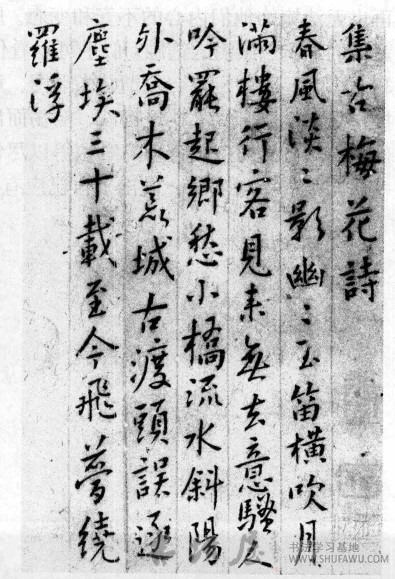 集古梅花詩
春風淡〻影幽〻玉笛橫吹月
滿樓行客見来無去意騷人
吟罷起鄉愁小橋流水斜陽
外喬木荒城古渡頭誤逐
塵埃三十載至今飛夢繞
羅浮
书法学习基地
WWW.SHUFAWU.COM